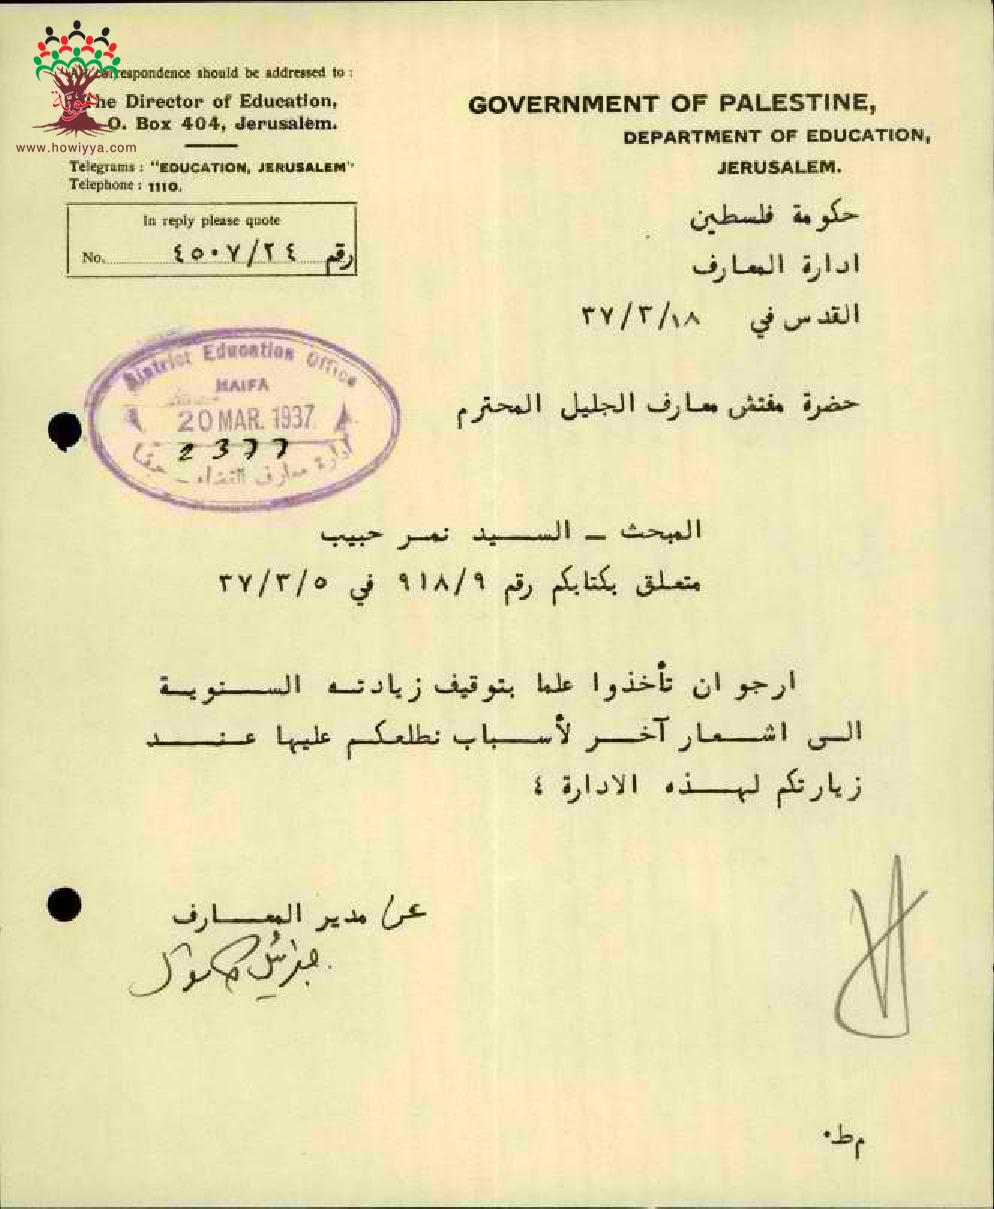 All correspondence should be addressed to :
The Director of Education,
P. O. Box 404, Jerusalem.
Telegrams : "EDUCATION, JERUSALEM"
Telephone : 1110.
In reply please quote
No. ٤٥٠٧/٢٤ رقم
هوية
www.howiyya.com
GOVERNMENT OF PALESTINE,
DEPARTMENT OF EDUCATION,
JERUSALEM.
حكومة فلسطين
ادارة المعارف
القدس في ٣٧/٣/١٨
District Education Office
HAIFA
20 MAR. 1937
2377
ادارة معارف القضاء - حيفا
حضرة مفتش معارف الجليل المحترم
المبحث - السيد نمر حبيب
متعلق بكتابكم رقم ٩١٨/٩ في ٣٧/٣/٥
ارجو ان تأخذوا علما بتوقيف زيادته السنوية
الى اشعار آخر لأسباب نطلعكم عليها عند
زيارتكم لهذه الادارة ٤
عن/ مدير المعارف
م ط٠